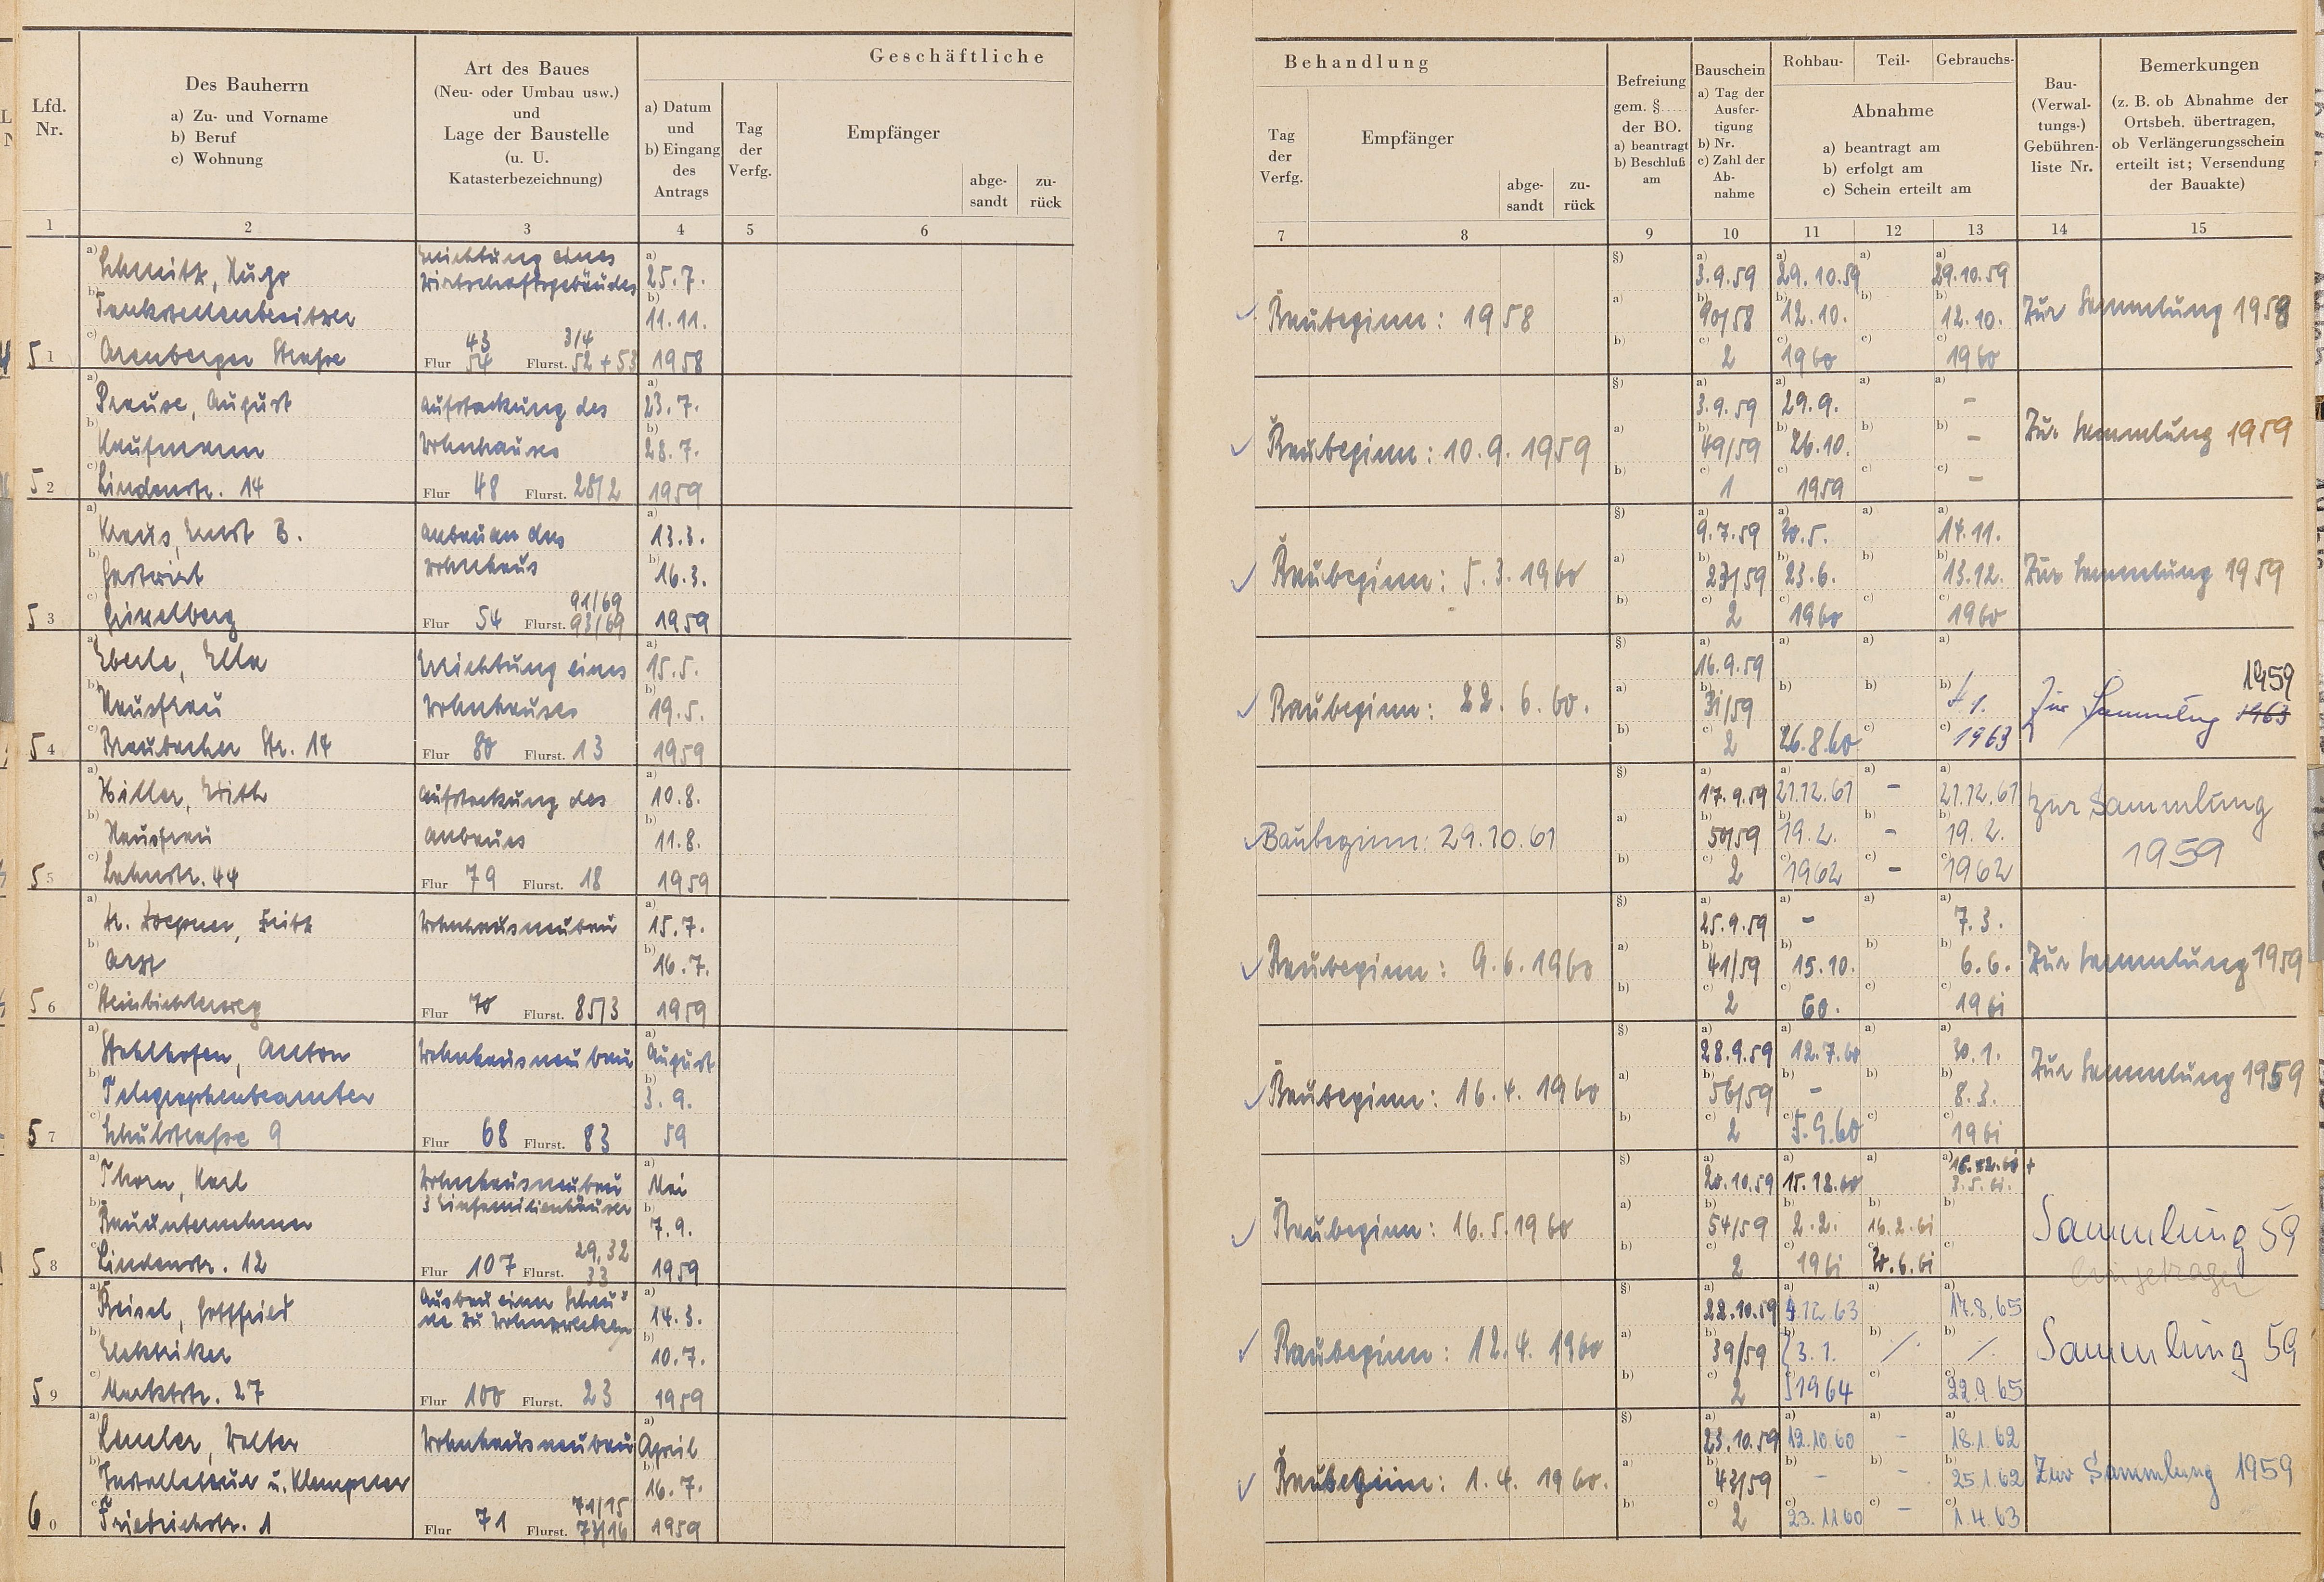 Geschäftliche
Lfd.
Nr.
Des Bauherrn
a) Zu- und Vorname
b) Beruf
c) Wohnung
Art des Baues
(Neu- oder Umbau usw.)
und
Lage der Baustelle
(u. U.
Katasterbezeichnung)
a) Datum
und
b) Eingang
des
Antrags
Tag
der
Verfg.
Empfänger
abge-
sandt
zu-
rück
1 2 3 4 5 6
a) Schmitt, Hugo
Errichtung eines
Wirtschaftsgebäudes
a) 25.7.
b) Tankstellenbesitzer
b) 11.11.
43 3/4
51 c) Arenberger Straße
Flur 54 Flurst. 52 + 53
1958
a) Krause, August
Aufstockung des
a) 23.7.
b) Kaufmann
Wohnhauses
b) 28.7.
52 c) Lindenstr. 14
Flur 48 Flurst. 28/2
1959
a) Kraus, Ernst B.
Anbau an das
a) 13.3.
b) Gastwirt
Wohnhaus
b) 16.3.
91/69
53 c)
Flur 54 Flurst. 93/69
1959
a) Eberle, Ella
Errichtung eines
a) 15.5.
b) Hausfrau
Wohnhauses
b) 19.5.
54 c) Braubacher Str. 14
Flur 80 Flurst. 13
1959
a) Hiller, Edith
Aufstockung des
a) 10.8.
b) Hausfrau
Anbaues
b) 11.8.
55 c) Lahnstr. 44
Flur 79 Flurst. 18
1959
a) Dr. Fritz
Wohnhausneubau
a) 15.7.
b) Arzt
b) 16.7.
56 c)
Flur 70 Flurst. 85/3
1959
a) Stahlhofen, Anton
Wohnhausneubau
a) August
b) Telegraphenbeamter
b) 3.9.
57 c) Schulstraße 9
Flur 68 Flurst. 83
59
a) Thorn, Karl
Wohnhausneubau
a) Mai
3 Einfamilienhäuser
b) Bauunternehmer
b) 7.9.
29, 32
58 c) Lindenstr. 12
Flur 107 Flurst. 33
1959
a) Beisel, Gottfried
Ausbau einer Scheu-
ne zu Wohnzwecken
a) 14.3.
b) Elektriker
b) 10.7.
59 c) Marktstr. 27
Flur 100 Flurst. 23
1959
a) Walter
Wohnhausneubau
a) April
b) Installateur u. Klempner
b) 16.7.
71/15
60 c) Friedrichstr. 1
Flur 71 Flurst. 73/16
1959
Behandlung
Tag
der
Verfg.
Empfänger
abge-
sandt
zu-
rück
Befreiung
gem. §
der BO.
a) beantragt
b) Beschluß
am
Bauschein
a) Tag der
Ausfer-
tigung
b) Nr.
c) Zahl der
Ab-
nahme
Rohbau- Teil- Gebrauchs-
Abnahme
a) beantragt am
b) erfolgt am
c) Schein erteilt am
Bau-
(Verwal-
tungs-)
Gebühren-
liste Nr.
Bemerkungen
(z. B. ob Abnahme der
Ortsbeh. übertragen,
ob Verlängerungsschein
erteilt ist; Versendung
der Bauakte)
7 8 9 10 11 12 13 14 15
§) a) 3.9.59 a) 29.10.59 a) a) 29.10.59
✓ Baubeginn: 1958 a) b) 90/58 b) 12.10. b) b) 12.10. Zur Sammlung 1958
b) c) 2 c) 1960 c) c) 1960
§) a) 3.9.59 a) 29.9. a) a) -
✓ Baubeginn: 10.9.1959 a) b) 49/59 b) 26.10. b) b) - Zur Sammlung 1959
b) c) 1 c) 1959 c) c) -
§) a) 9.7.59 a) 30.5. a) a) 14.11.
✓ Baubeginn: 5.3.1960 a) b) 23/59 b) 23.6. b) b) 13.12. Zur Sammlung 1959
b) c) 2 c) 1960 c) c) 1960
§) a) 16.9.59 a) a) a) 1959
✓ Baubeginn: 22.6.60. a) b) 31/59 b) b) b) Zur Sammlung 1963
b) c) 2 26.8.60 c) c) 1963
§) a) 17.9.59 a) 21.12.61 a) - a) 21.12.61 zur Sammlung
✓ Baubeginn: 29.10.61 a) b) 50/59 b) 19.2. b) - b) 19.2. 1959
b) c) 2 c) 1962 c) - c) 1962
§) a) 25.9.59 a) - a) a) 7.3.
✓ Baubeginn: 9.6.1960 a) b) 41/59 b) 15.10. b) b) 6.6. Zur Sammlung 1959
b) c) 2 c) 60. c) c) 1961
§) a) 28.9.59 a) 12.7.60 a) a) 30.1.
✓ Baubeginn: 16.4.1960 a) b) 56/59 b) - b) b) 8.3. Zur Sammlung 1959
b) c) 2 c) 5.9.60 c) c) 1961
§) a) 20.10.59 a) 15.12.60 a) a) 3.5.61.
✓ Baubeginn: 16.5.1960 a) b) 54/59 b) 2.2. b) 16.2.61 b) Sammlung 59
b) c) 2 c) 1961 c) 30.6.61 c) eingetragen
§) a) 22.10.59 a) 9.12.63 a) a) 17.8.65
✓ Baubeginn: 12.4.1960 a) b) 39/59 b) 3.1. b) b) Sammlung 59
b) c) 2 c) 1964 c) c) 22.9.65
§) a) 23.10.59 a) 12.10.60 a) - a) 18.1.62
✓ Baubeginn: 1.4.1960. a) b) 43/59 b) - b) - b) 25.1.62 Zur Sammlung 1959
b) c) 2 c) 23.11.60 c) - c) 1.4.63